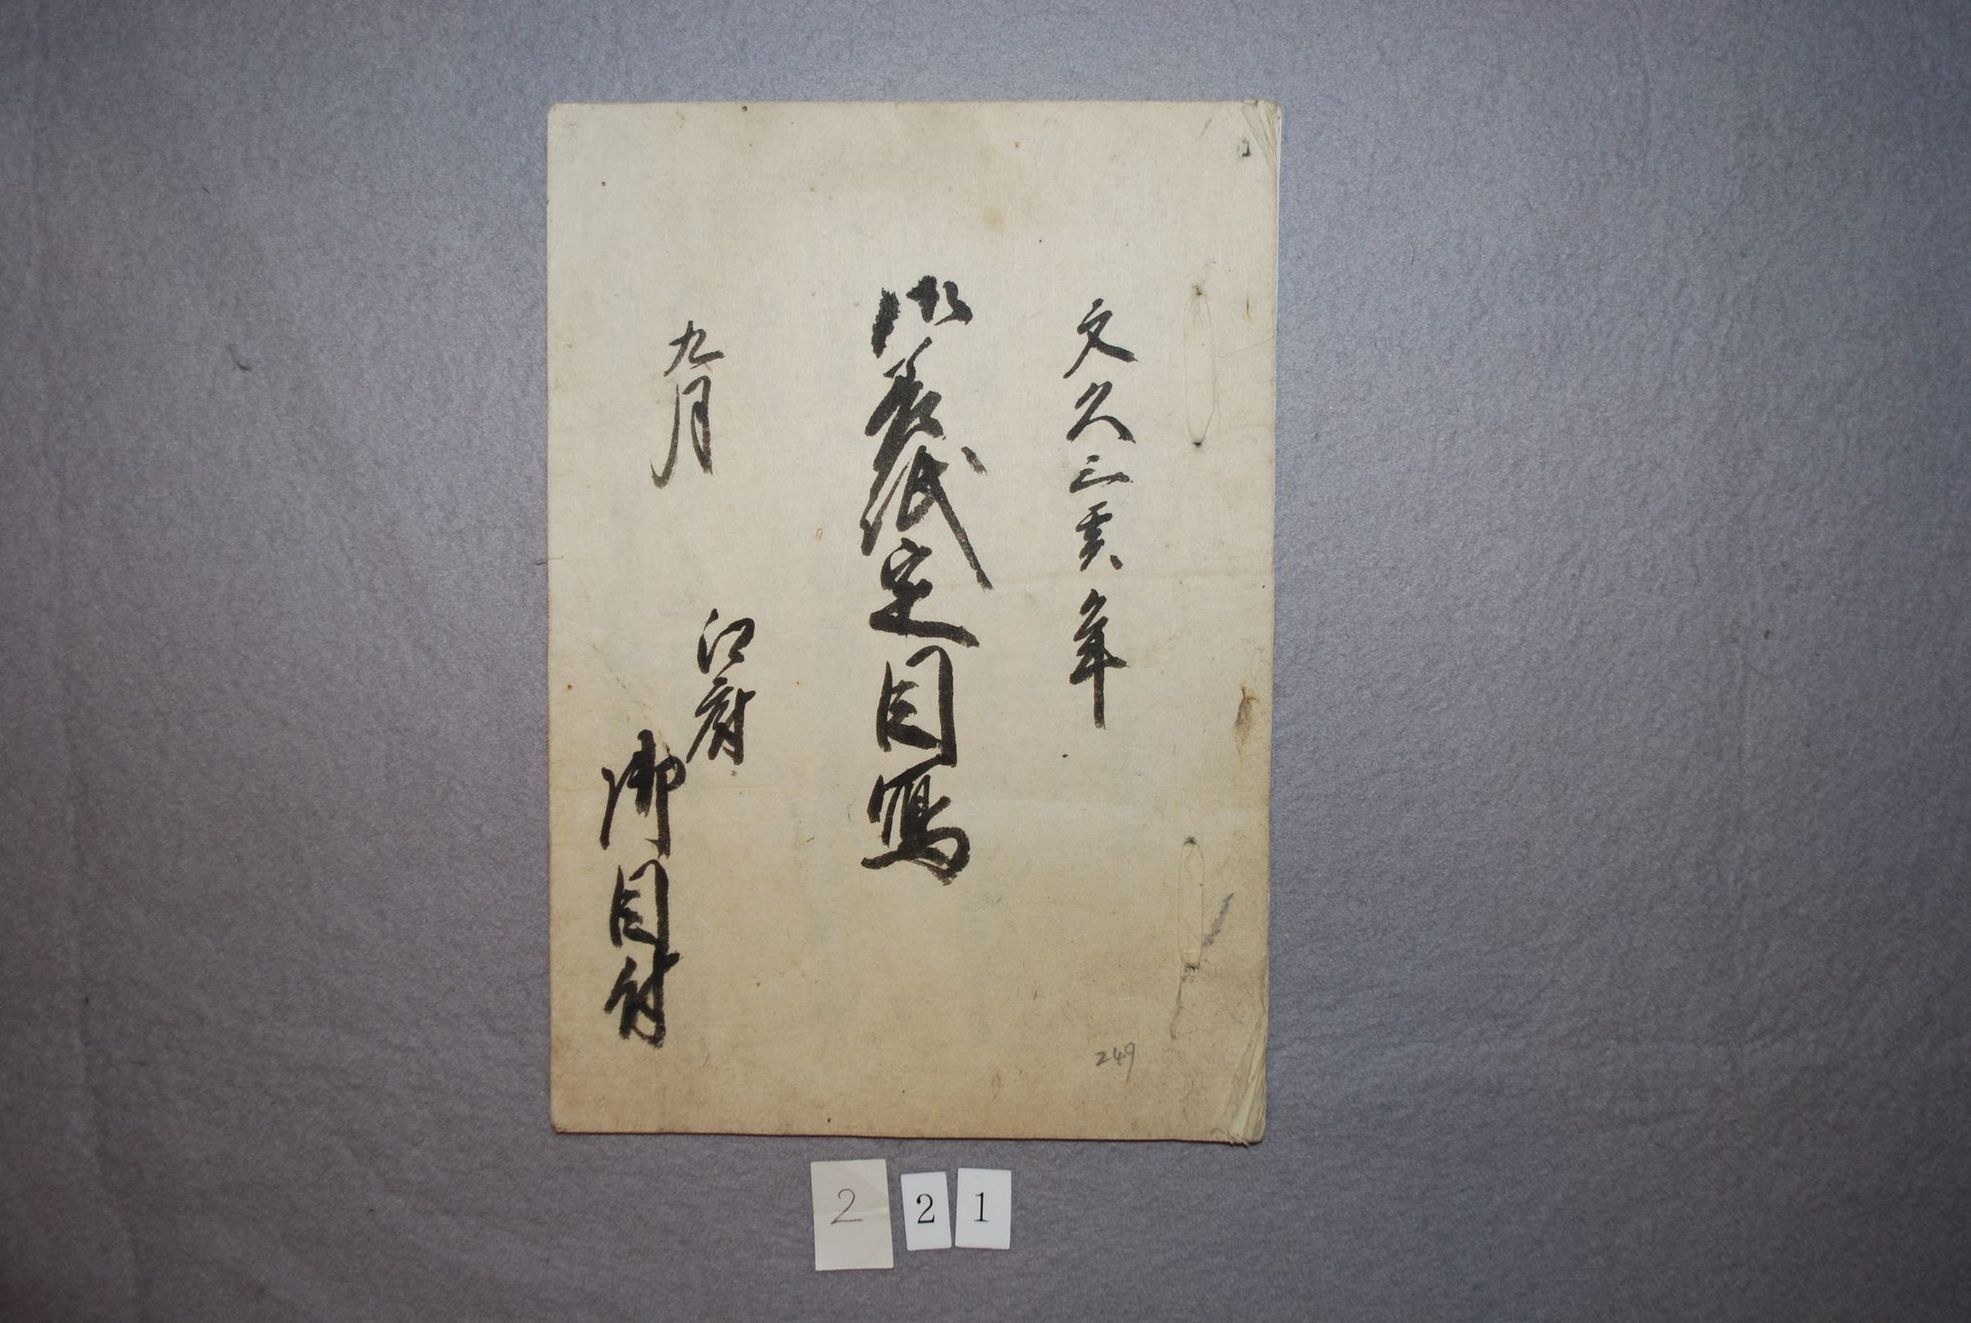 文久三亥年
御差紙定目寫
九月
江府
御目付
249
2 2 1